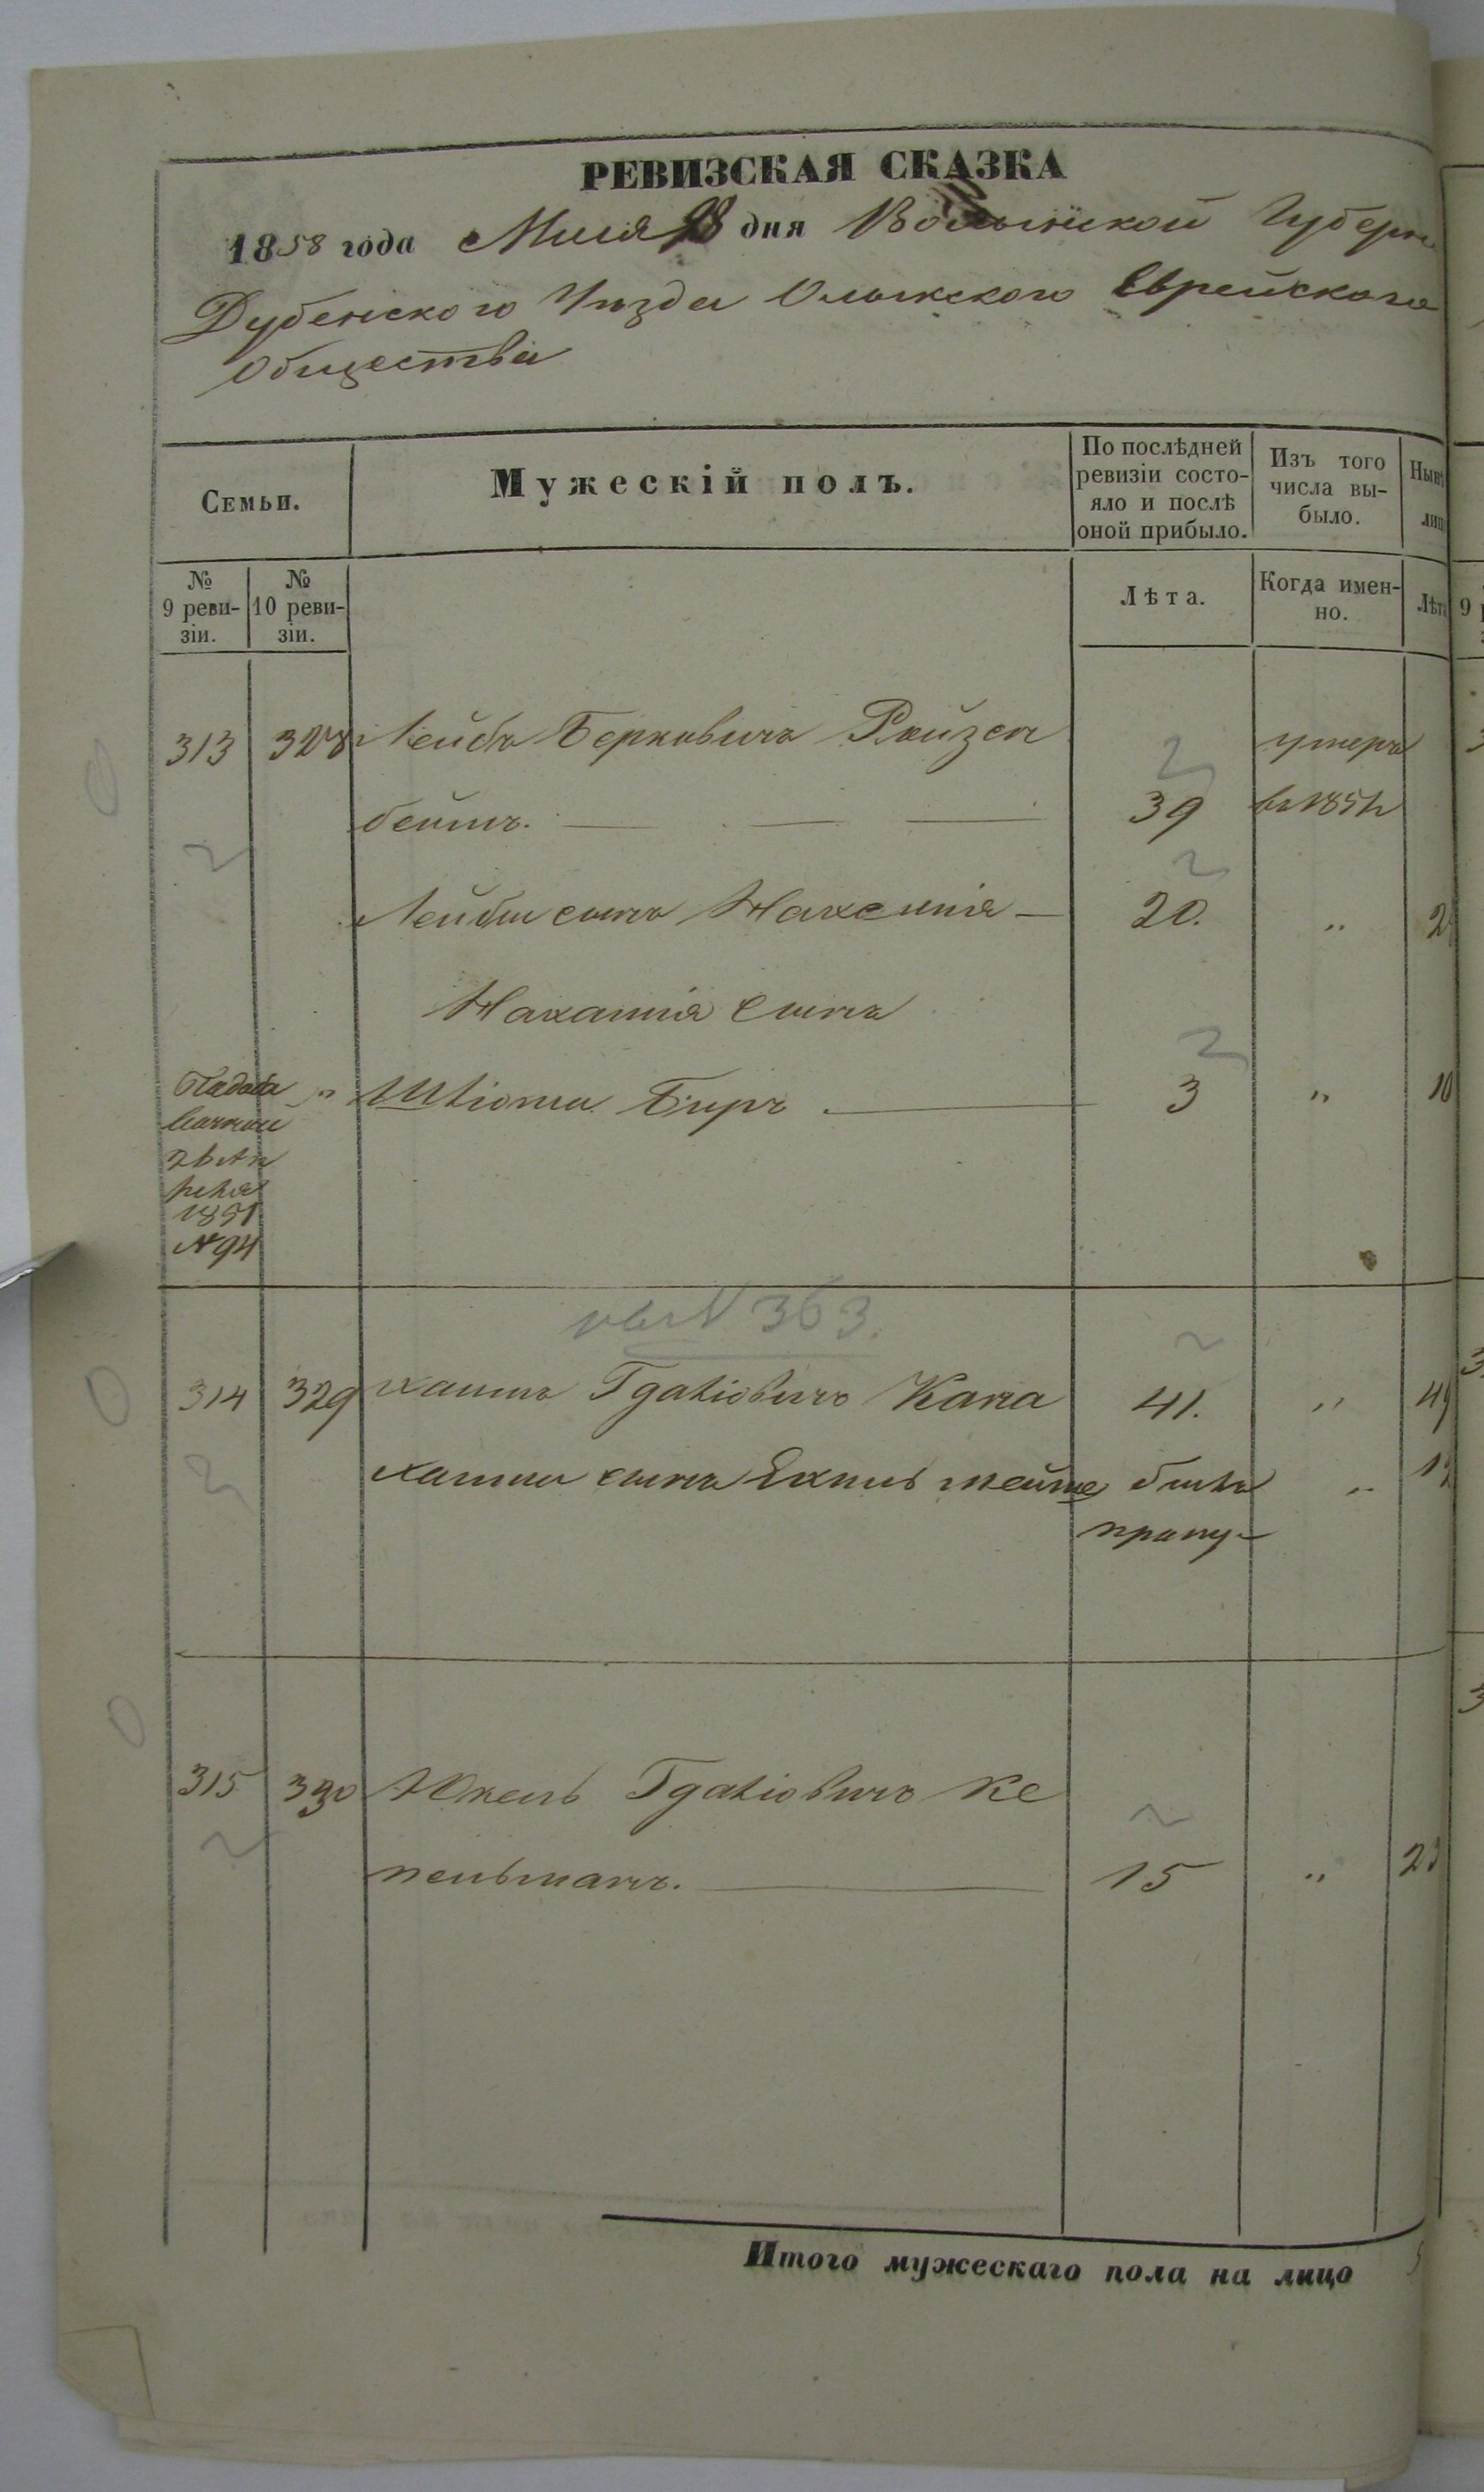 РЕВИЗСКАЯ СКАЗКА
1858 года Маія 28 дня Волынской Губерн
Дубенского Уѣзда Олыкского Еврейского
Общества
Семьи.
Мужескій полъ.
По послѣдней ревизіи состо-
яло и послѣ
оной прибыло.
Изъ того
числа вы-
было.
Нынѣ
лиц
№
9 реви-
зіи.
№
10 реви-
зіи.
Лѣта.
Когда имен-
но.
Лѣта
313 328 Лейба Берковичъ Ройзен
умеръ
бейтъ. 39
въ 185
Лейбы сынъ Нахемія 20. „ 2
Нахамія Сынъ
„ Шліома Беръ 3 „ 10
1851
№ 94
№ 363.
314 329 Хаимъ Гдаліовичъ Кана 41. „ 49
Хаима сынъ былъ „
пропу-
315 330 Юкель Гдаліовичъ Ке
пельманъ. 15 „ 23
Итого мужескаго пола на лицо